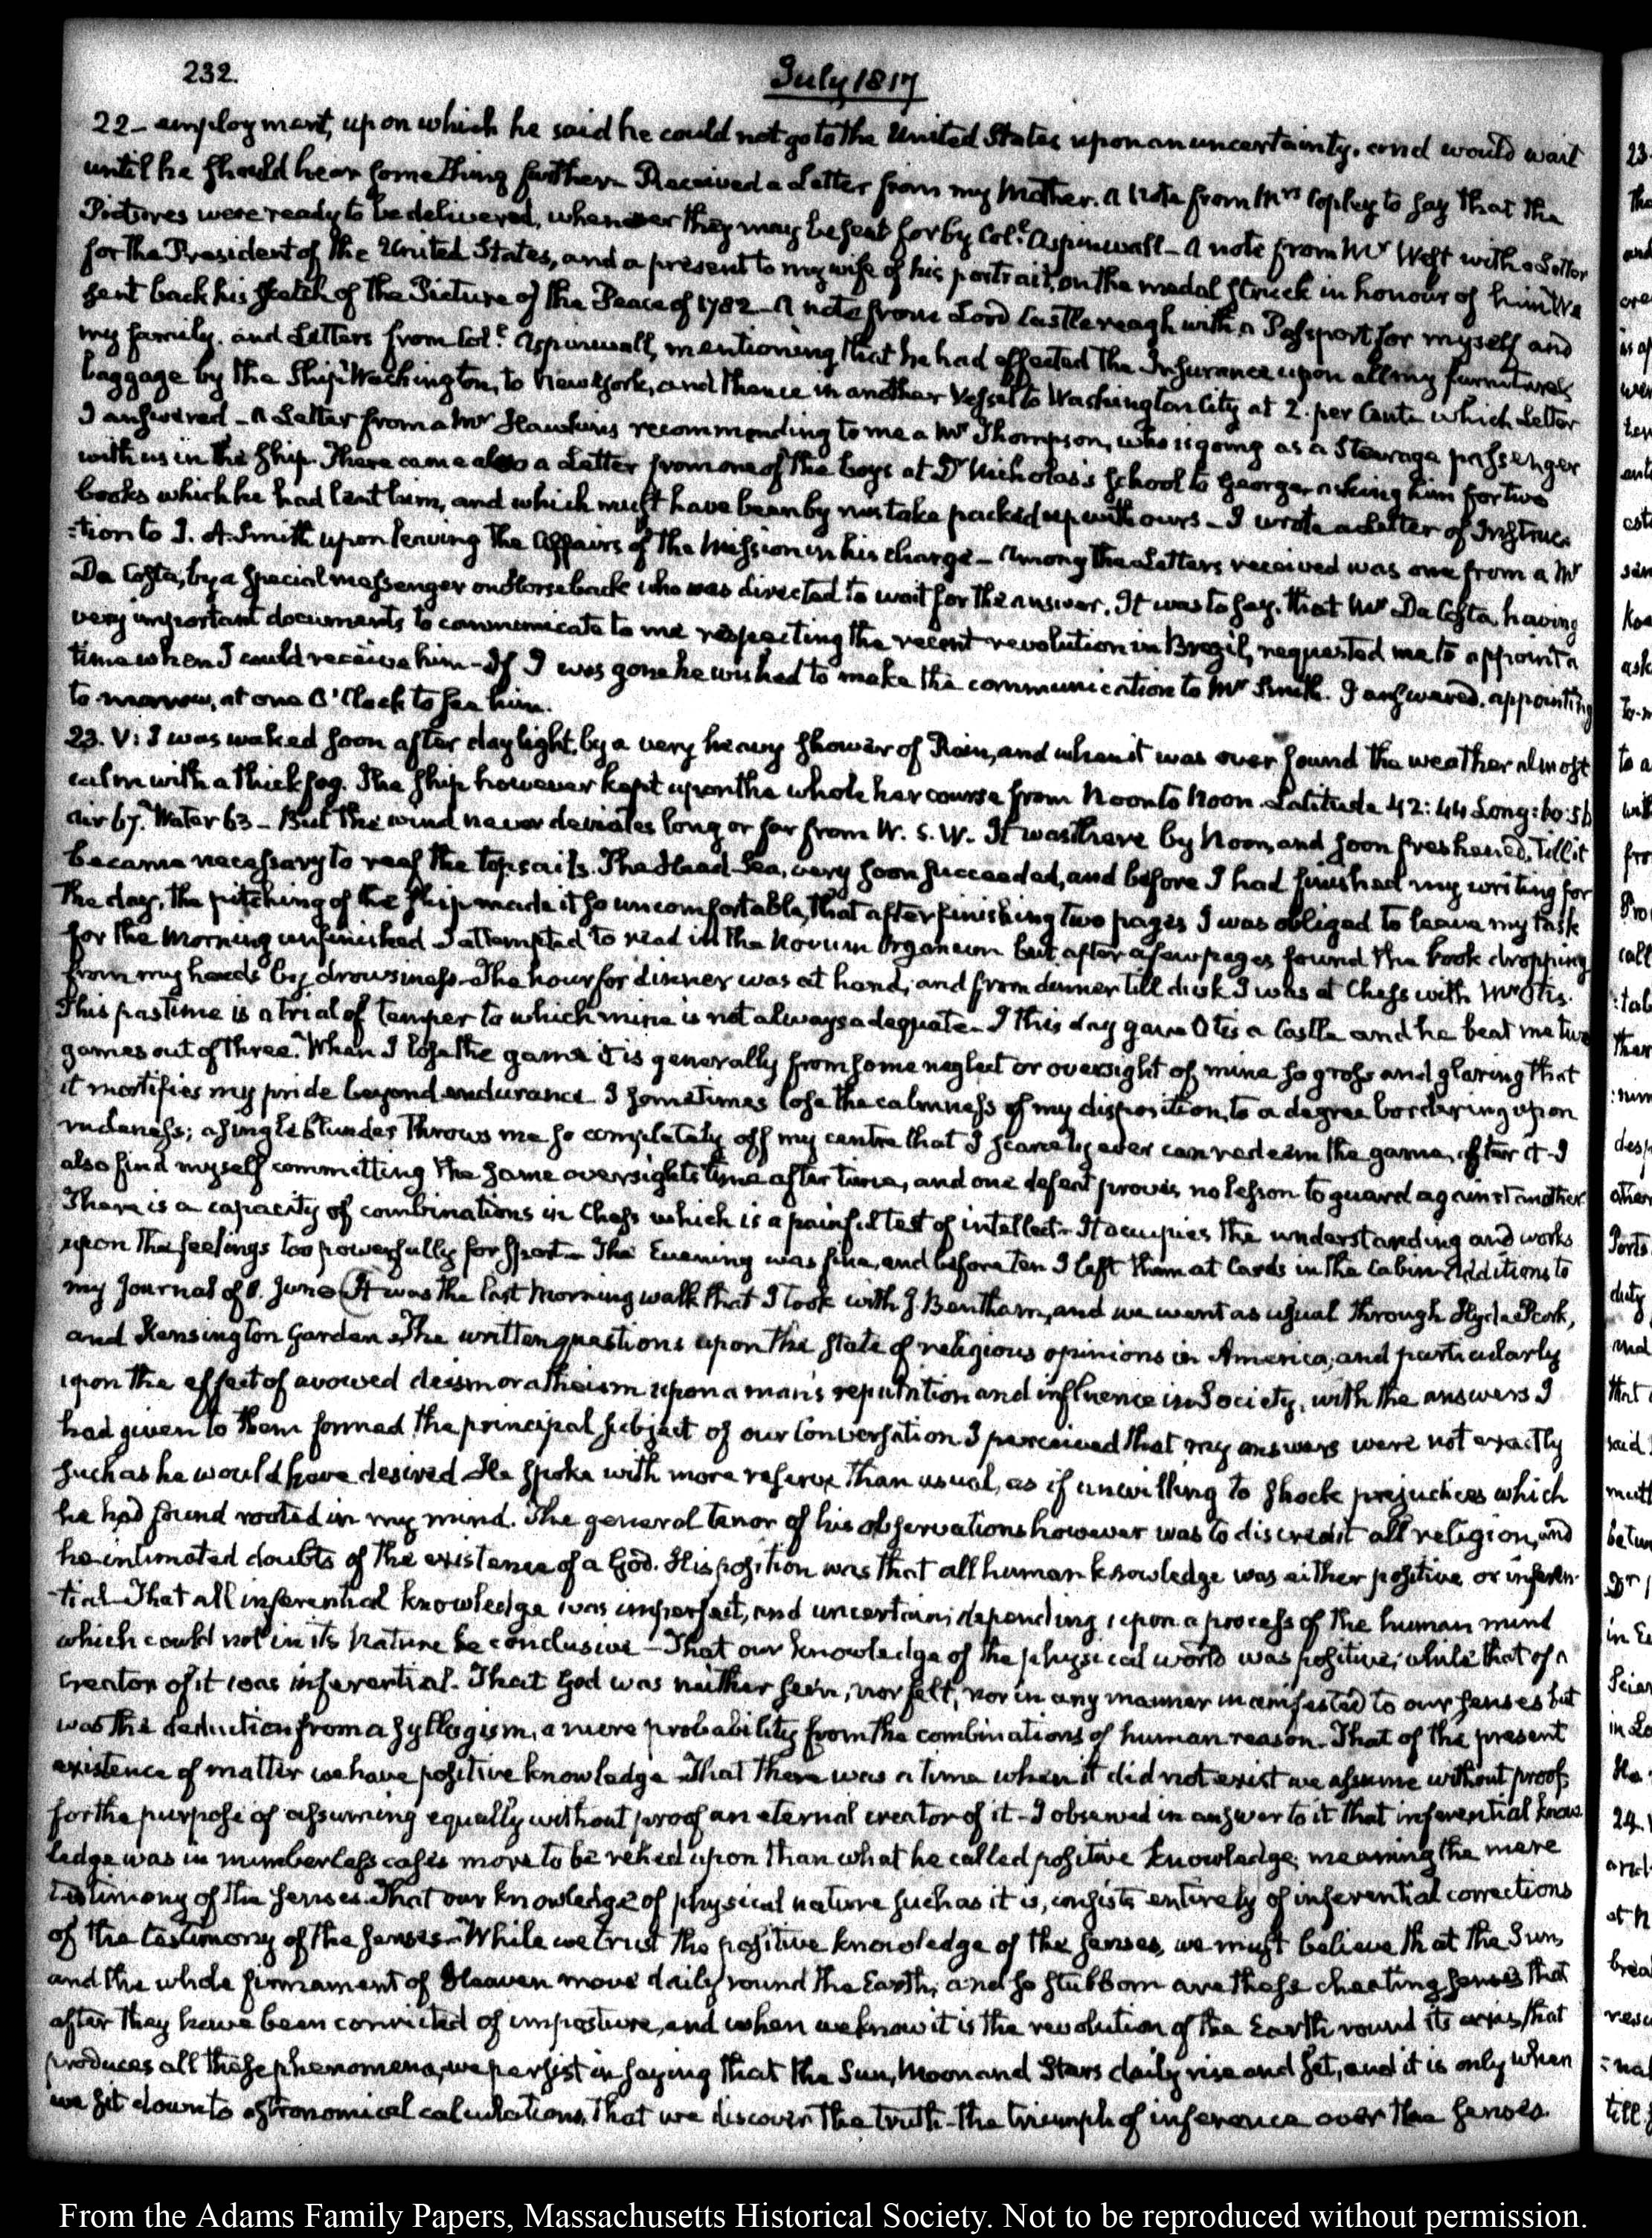 232.
July 1817
22— employment, upon which he said he could not go to the United States upon an uncertainty, and would wait
until he should hear something further. Received a Letter from my Mother. A Note from Mrs Copley to say that the
Pictures were ready to be delivered, whenever they may be sent for by Coll. Aspinwall— A note from Mr West with a Letter
for the President of the United States, and a present to my wife of his portrait, on the medal struck in honour of him. We
sent back his sketch of the Picture of the Peace of 1782— A note from Lord Castlereagh with a Passport for myself and
my family. and Letters from Coll. Aspinwall, mentioning that he had effected the Insurance upon all my furniture &
baggage by the Ship Washington, to New York, and thence in another Vessel to Washington City at 2. per Cent. which Letter
I answered— A Letter from a Mr Hawkins recommending to me a Mr Thompson, who is going as a Steerage passenger
with us in the Ship. There came also a Letter from one of the boys at Dr Nicholas's School to George, asking him for two
books which he had lent him, and which must have been by mistake packed up with ours— I wrote a Letter of Instruc-
:tion to J. A. Smith upon leaving the Affairs of the Mission in his charge— Among the Letters received was one from a Mr
Da Costa, by a special messenger on Horseback who was directed to wait for the answer. It was to say, that Mr Da Costa, having
very important documents to communicate to me respecting the recent revolution in Brazil, requested me to appoint a
time when I could receive him— If I was gone he wished to make the communication to Mr Smith. I answered, appointing
to-morrow, at one O'Clock to see him.
23. V: I was waked soon after daylight, by a very heavy shower of Rain, and when it was over found the weather almost
calm with a thick fog. The ship however kept upon the whole her course from Noon to Noon. Latitude 42:44 Long: 60:56
Air 67. Water 63— But the wind never deviates long or far from W. S. W. It was there by Noon, and soon freshened, till it
became necessary to reef the topsails. The Head-Sea, very soon succeeded, and before I had finished my writing for
the day, the pitching of the ship made it so uncomfortable, that after finishing two pages I was obliged to leave my task
for the Morning unfinished. I attempted to read in the Novum Organum but after a few pages found the book dropping
from my hands by drowsiness. The hour for dinner was at hand, and from dinner till dusk I was at Chess with Mr Otis.
This pastime is a trial of temper to which mine is not always adequate. I this day gave Otis a Castle and he beat me two
games out of three. When I lose the game it is generally from some neglect or oversight of mine so gross and glaring that
it mortifies my pride beyond endurance. I sometimes lose the calmness of my disposition, to a degree bordering upon
rudeness; a single blunder throws me so completely off my centre that I scarcely ever can redeem the game, after it— I
also find myself committing the same oversights time after time, and one defeat proves no lesson to guard against another.
There is a capacity of combinations in Chess which is a painful test of intellect— It occupies the understanding and works
upon the feelings too powerfully for sport— The Evening was fine, and before ten I left them at Cards in the Cabin. Additions to
my Journal of 8. June. (It was the last Morning walk that I took with J. Bentham, and we went as usual through Hyde Park,
and Kensington Garden. The written questions upon the state of religious opinions in America, and particularly
upon the effect of avowed deism or atheism upon a man's reputation and influence in Society, with the answers I
had given to them formed the principal subject of our Conversation. I perceived that my answers were not exactly
such as he would have desired. He spoke with more reserve than usual, as if unwilling to shock prejudices which
he had found rooted in my mind. The general tenor of his observations however was to discredit all religion, and
he intimated doubts of the existence of a God. His position was that all human knowledge was either positive or inferen-
-tial. That all inferential knowledge was imperfect, and uncertain, depending upon a process of the human mind
which could not in its Nature be conclusive— That our knowledge of the physical world was positive, while that of a
Creator of it was inferential. That God was neither seen, nor felt, nor in any manner manifested to our senses but
was the deduction from a syllogism, a mere probability from the combinations of human reason. That of the present
existence of matter we have positive knowledge. That there was a time when it did not exist we assume without proof,
for the purpose of assuming equally without proof an eternal creator of it— I observed in answer to it that inferential know-
ledge was in numberless cases more to be relied upon than what he called positive knowledge, meaning the mere
testimony of the senses. That our knowledge of physical nature such as it is, consists entirely of inferential corrections
of the testimony of the senses— While we trust the positive knowledge of the senses, we must believe that the Sun,
and the whole firmament of Heaven move daily round the Earth; and so stubborn are these cheating senses that
after they have been convicted of imposture, and when we know it is the revolution of the Earth round its axis, that
produces all these phenomena, we persist in saying that the Sun, Moon and Stars daily rise and set, and it is only when
we sit down to astronomical calculations, that we discover the truth— the triumph of inference over the senses.
From the Adams Family Papers, Massachusetts Historical Society. Not to be reproduced without permission.